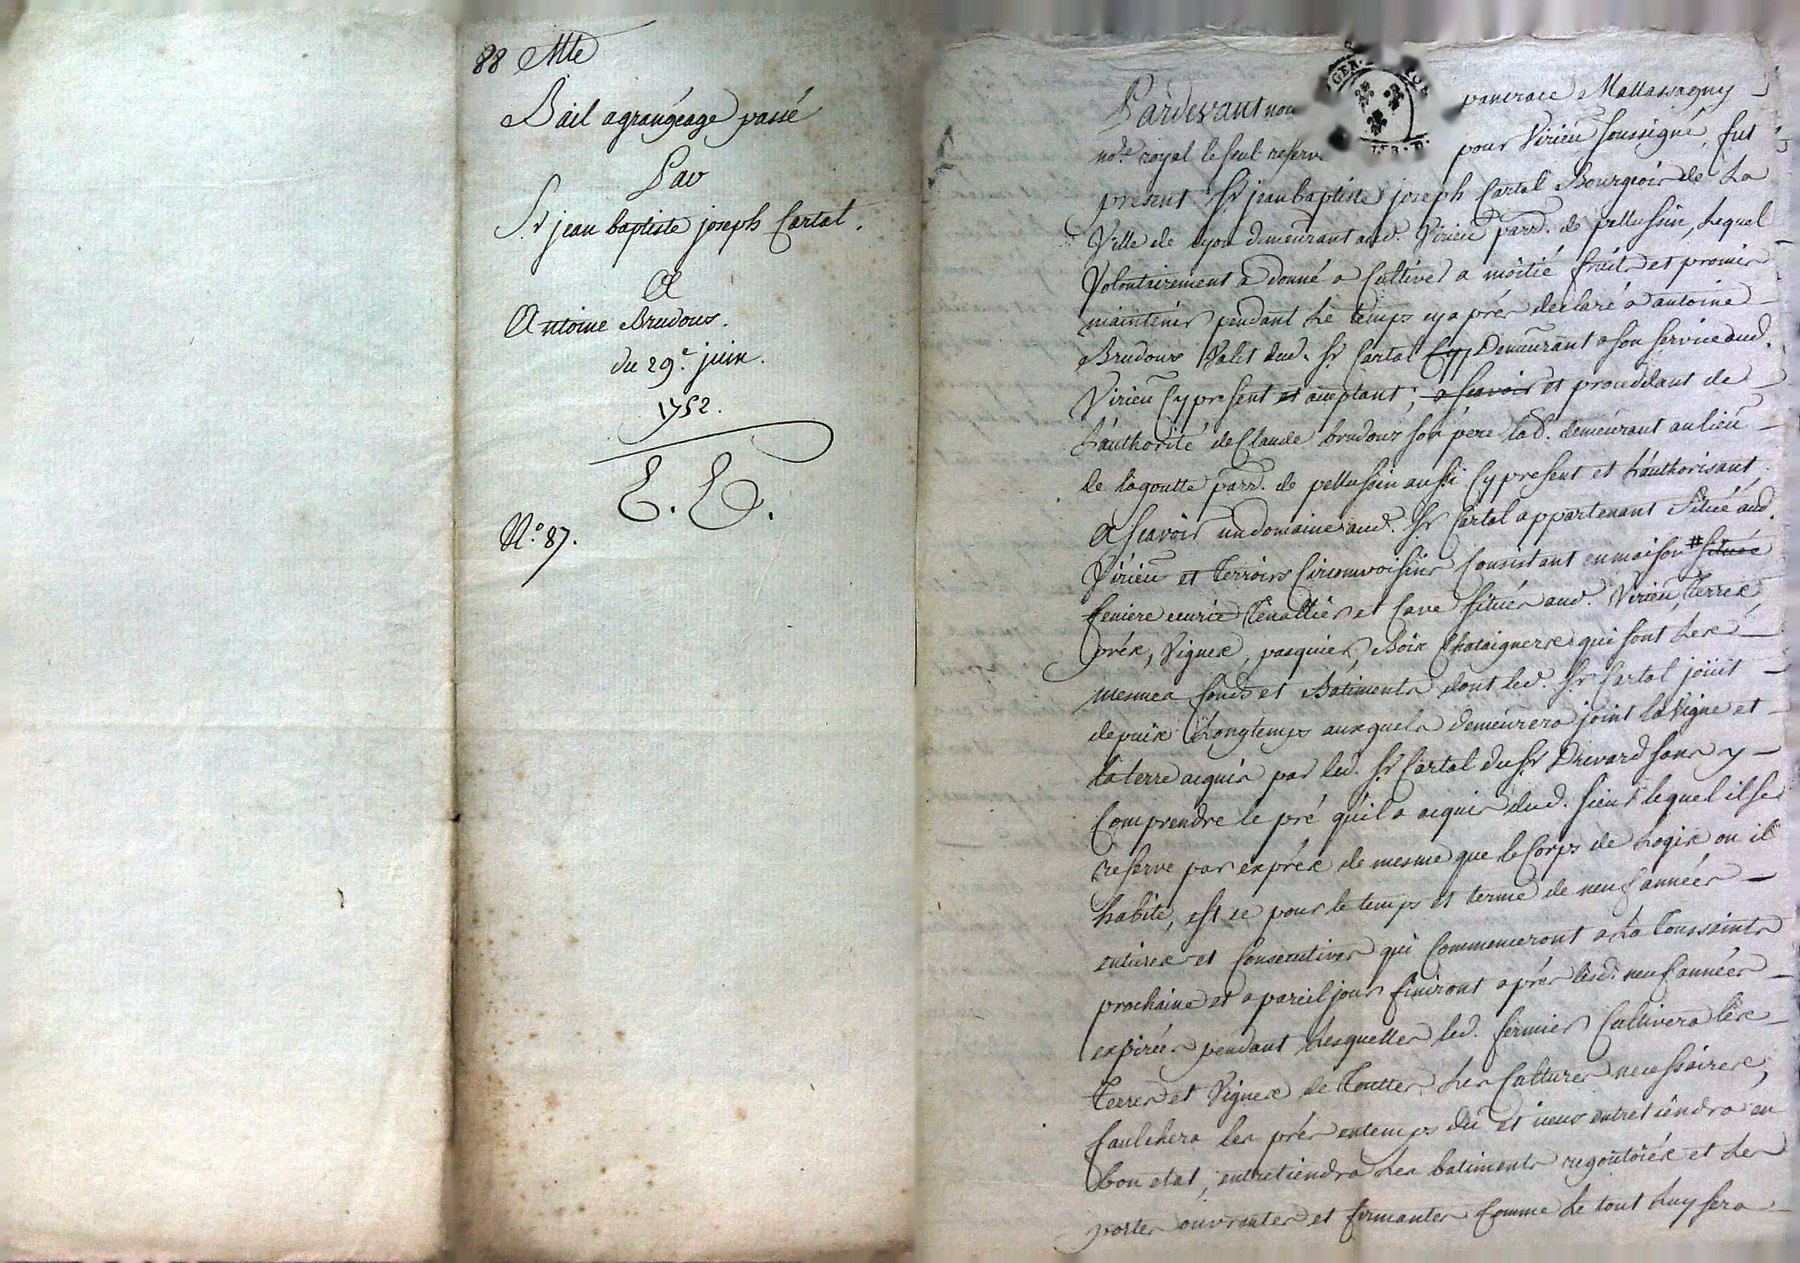 88 Mte
Bail a grangéage passé
Par
Sr jean baptiste joseph Cartal.
A
Antoine Brudous.
du 29e. juin.
1752.
E. E.
No. 87.
GEN. LYB. D.
Pardevant nou pancrace Mallassagny
nore. royal le seul reserv pour Virieu soussigné, fut
présent Sr jean baptiste joseph Cartal Bourgeois de La
Ville de Lyon demeurant aud. Virieu parr. de pellussin, Lequel
Volontairement a donné a Cultiver a moitié fruits et promis
maintenir pendant Le temps cy a prés declaré a antoine
Brudous Valet dud. Sr Cartal Cy Demeurant a son service aud.
Virieu Cy present et aceptant; a scavoir et procedant de
L'authorité de Claude brudous son pere Lab. demeurant au lieu
de lagoutte parr. de pellussin aussi Cy present et L'authorisant.
A scavoir un domaine aud. Sr Cartal appartenant Situé aud.
Virieu et Terroirs Circonvoisins Consistant en maison # Située
feniere ecurie Tenallier et Cave situés aud. Virieu, Terres
prés, Vignes, pasquiers, Bois Chataigners qui sont Les
mesmes fonds et Batiments dont led. Sr Cartal joüit
depuis Longtemps auxquels demeurera joint la Vigne et
la terre aquis par led. Sr Cartal du Sr Drevard sans y
Comprendre le pré qu'il a aquis dud. sieur lequel il se
reserve par exprés de mesme que le Corps de Logis ou il
habite, est ce pour le temps et terme de neuf années
entieres et Consecutives qui Commenceront a La Toussaints
prochaine et a pareil jour finiront aprés lesd. neuf années
expirées pendant Lesquelles led. fermier Cultivera les
Terres et Vignes de Touttes Les Cultures necessaires,
faulchera les prés en temps dû et iceux entretiendra en
bon etat, entretiendra Les batiments regoutoiés et Les
portes ouvrantes et fermantes Comme Le tout Luy sera